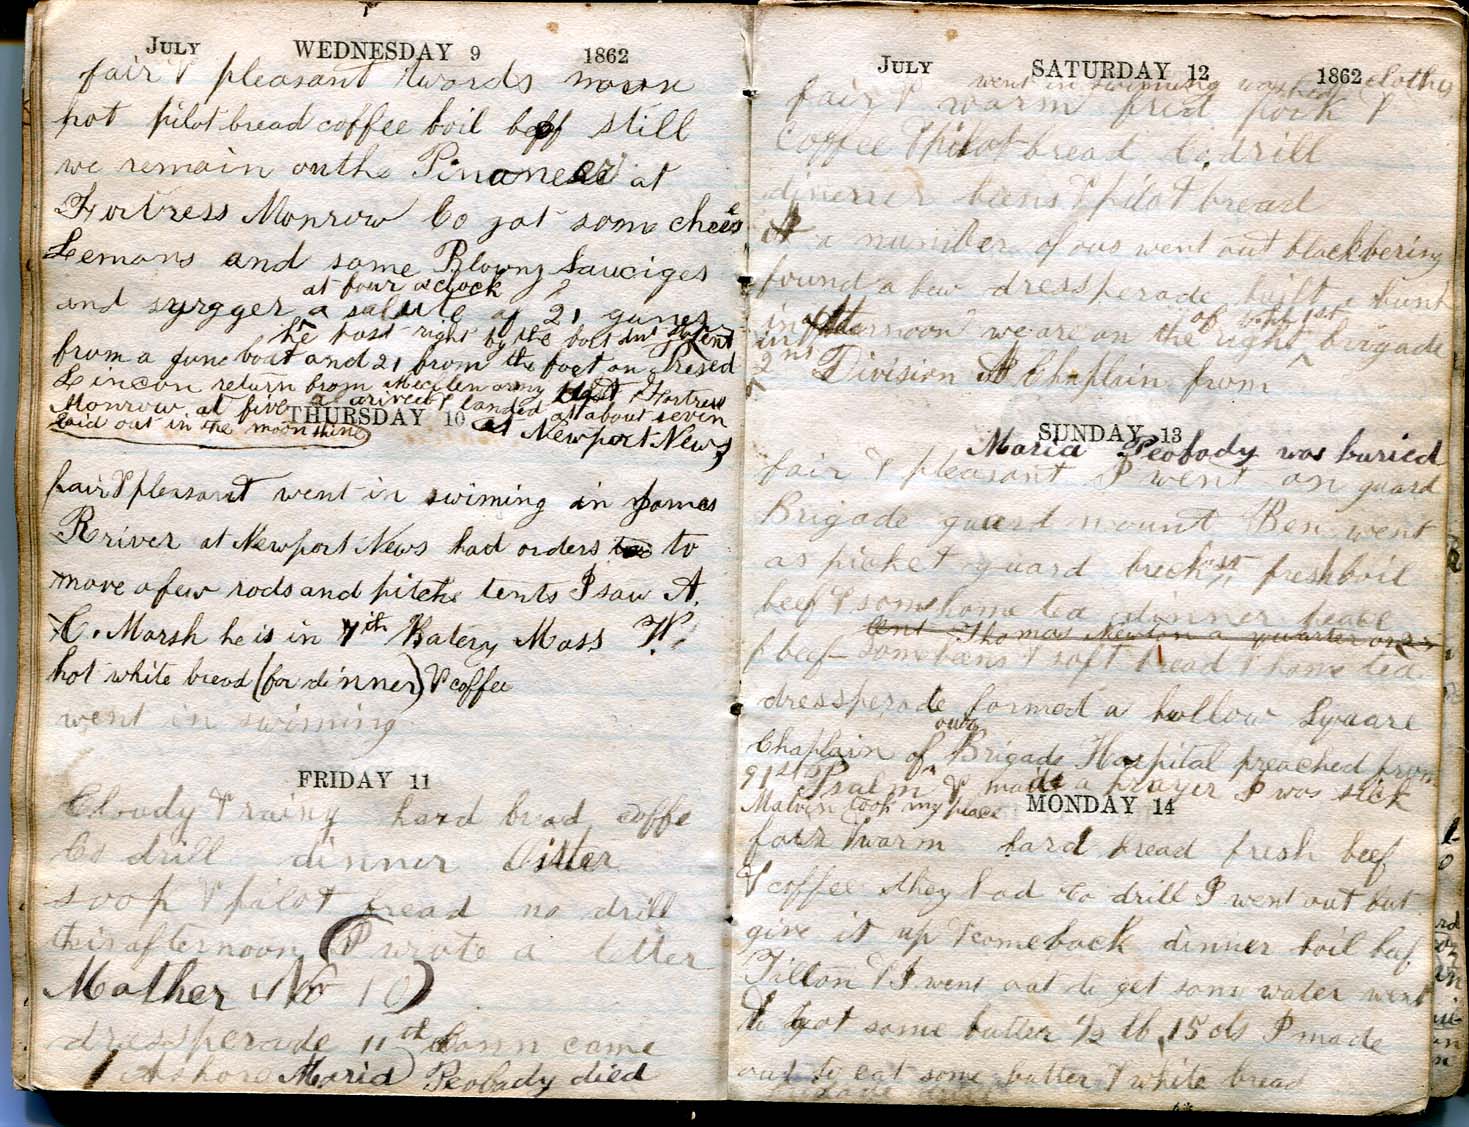 JULY WEDNESDAY 9 1862
fair & pleasant twords noon
hot pilot bread coffee boil beff still
we remain on the Pinaneer at
Fortress Monrow Co got some chees
Lemons and some Blowny Sauciges
at four oclock
and syrgger a salute of 21 gunes
he past right by the boat
from a gune boat and 21 from the foet on Presed
Lincon return from army Fortress
Monrow at five arived & landed at about seven
laid out in the moon shine
THURSDAY 10 at Newport News
fair & pleasant went in swiming in James
Rriver at Newport News had orders to
move a few rods and pitche tents I saw A.
C. Marsh he is in 7th Batery Mass V.
hot white bread (for dinner) & coffee
went in swiming
FRIDAY 11
Cloudy & rainy hard bread coffe
Co drill dinner Oister
soop & pilot bread no drill
this afternoon (I wrote a letter
Mother No 10)
dressperade 11th Conn came
Ashore Maria Peobady died
JULY SATURDAY 12 1862
went in swimming washed clothes
fair & warm fried pork &
Coffee & pilot bread Co. drill
dinerr beens & pilot bread
a number of ous went out blackbering
found a few dressperade built a bunk
in afternoon we are on the right of 1st brigade
2nd Division A Chaplin from
SUNDAY 13
Maria Peobady was buried
fair & pleasant I went on guard
Brigade guard mount Ben went
as picket guard breckst fresh boil
beef & some home tea dinner peace
lent Thomas Newton a quarter
of beef some beens & soft bread & home tea
dressperade formed a hollow Square
our
Chaplain of Brigade Hospital preached from
91st Psalm & made a prayer I was sick
Malvin took my place
MONDAY 14
fair & warm hard bread fresh beef
& coffee they had Co drill I went out but
give it up & come back dinner boil beef
Tillson & I went out to get some water went
& got some butter 1/2 lb 15 cts I made
out to eat some butter & white bread